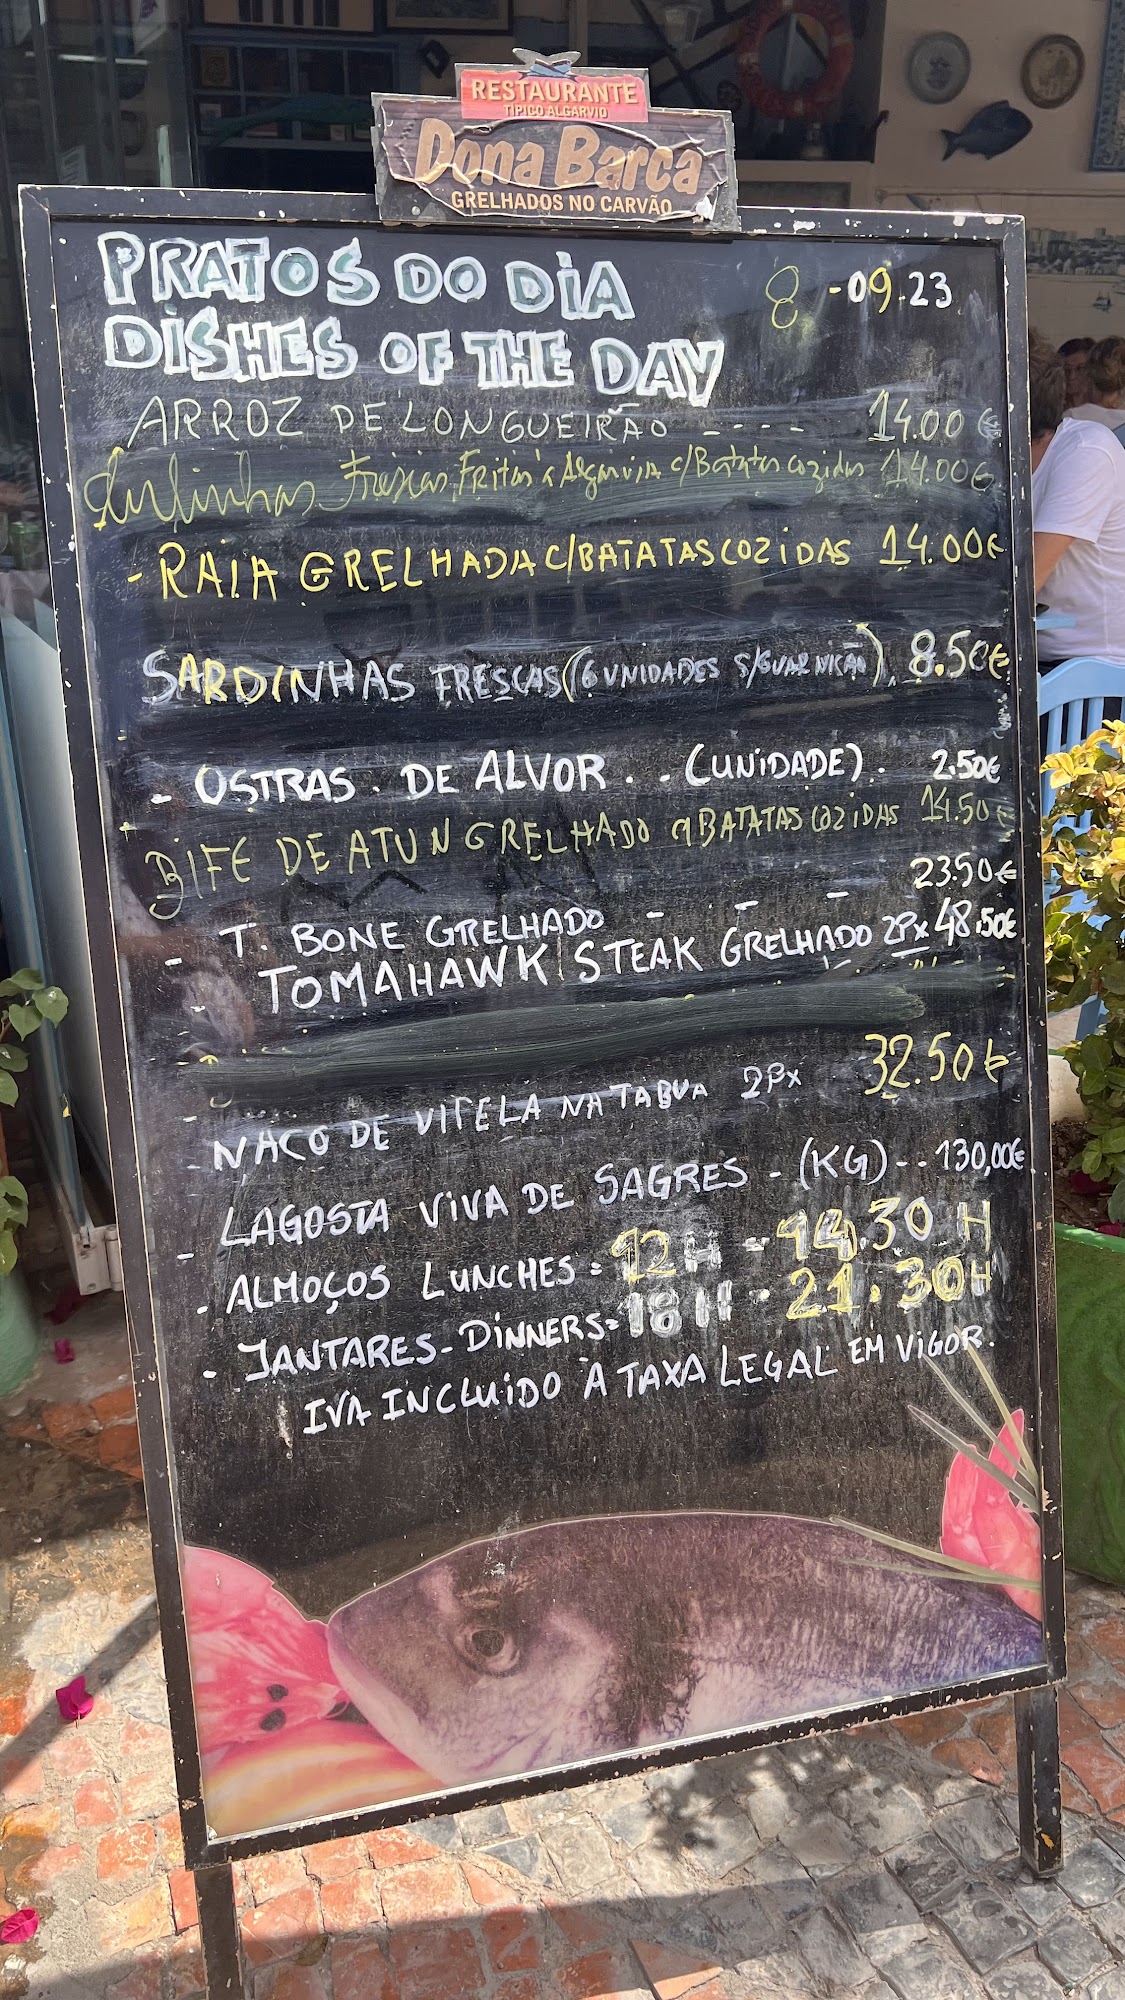 RESTAURANTE
TIPICO ALGARVIO
Dona Barca
GRELHADOS NO CARVÃO
PRATOS DO DIA 8-09.23
DISHES OF THE DAY
ARROZ DE LONGUEIRÃO ---- 14.00€
Frescas, Fritas á Algarvia c/Batatas cozidas 14.00€
- RAIA GRELHADA C/BATATAS COZIDAS 14.00€
SARDINHAS FRESCAS (6 UNIDADES S/GUARNICÃO). 8.50€
- OSTRAS. DE ALVOR. . (UNIDADE). 2.50€
BIFE DE ATUN GRELHADO C/BATATAS COZIDAS 14.50€
- T. BONE GRELHADO - - - 23.50€
TOMAHAWK STEAK GRELHADO 2Px 48.50€
- NACO DE VITELA NA TABUA 2Px 32.50€
- LAGOSTA VIVA DE SAGRES - (KG) - - 130,00€
. ALMOÇOS LUNCHES = 12H - 14.30H
. JANTARES - DINNERS = 18H - 21.30H
IVA INCLUIDO A TAXA LEGAL EM VIGOR.